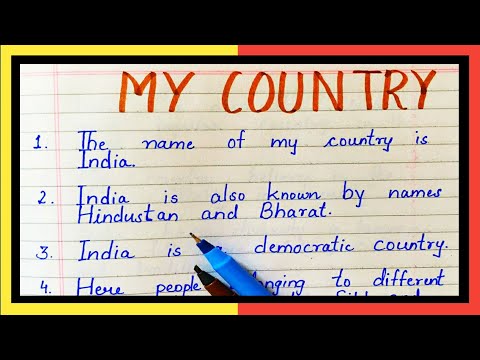 MY COUNTRY
1. The name of my country is
India.
2. India is also known by names
Hindustan and Bharat.
3. India is democratic country.
4. Here to different